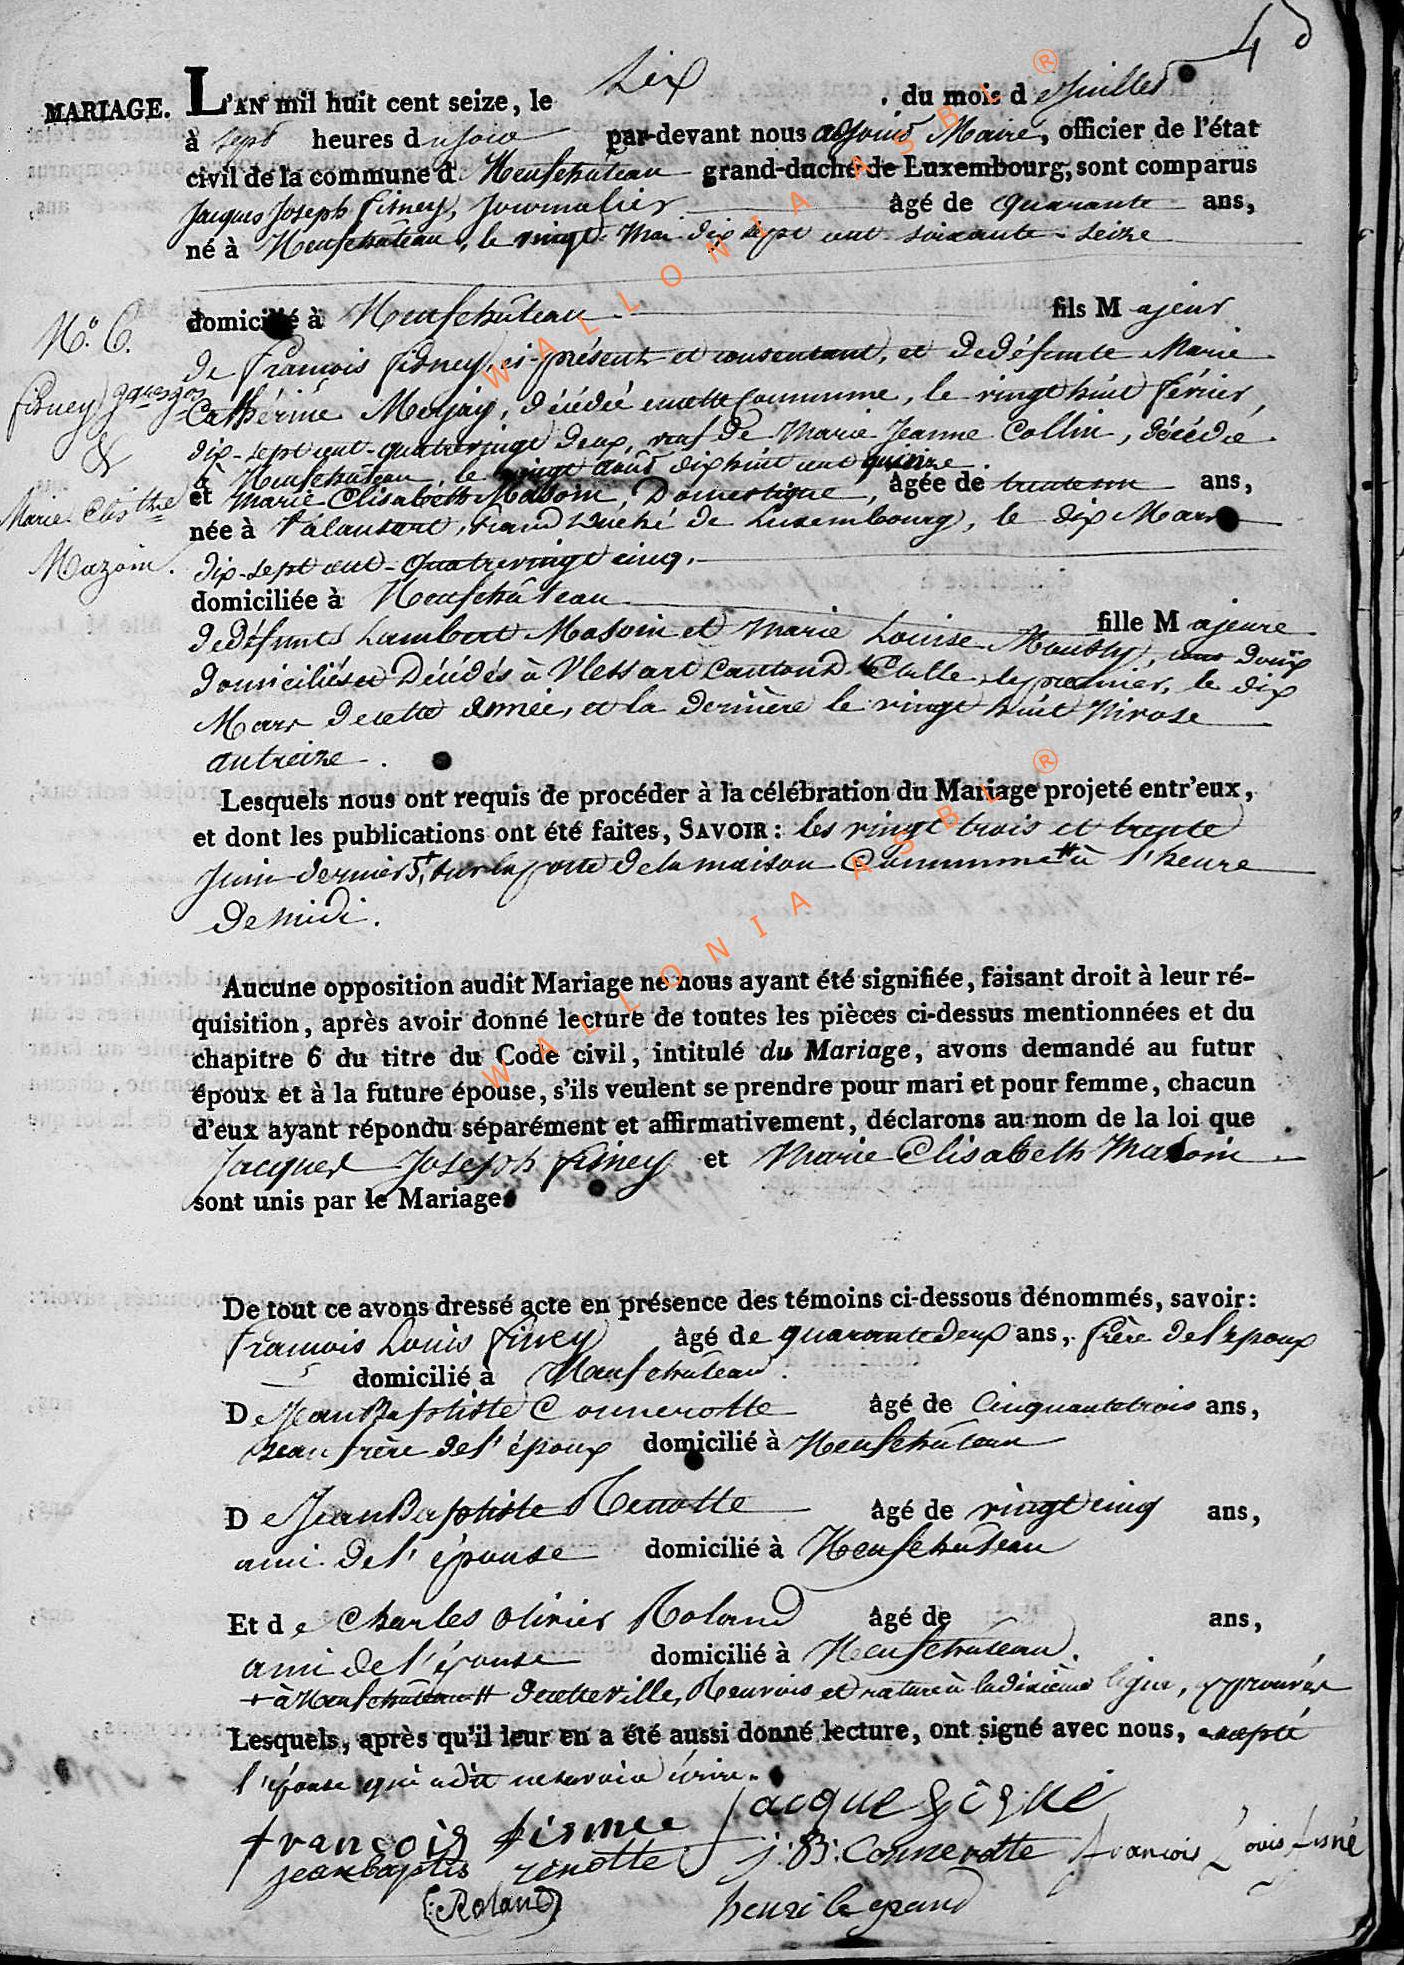 4
MARIAGE. L'AN mil huit cent seize, le Six du mois de Juillet
à sept heures du soir par-devant nous adjoint Maire, officier de l'état
civil de la commune d Neufchâteau grand-duché de Luxembourg, sont comparus
Jacques Joseph Fisney, Journalier âgé de quarante ans,
né à Neufchâteau, le vingt Mai dix sept cent soixante-seize
domicilié à Neufchâteau fils Majeur
N.° 6.
de François Fisney, ci-présent et consentant, et de défunte Marie
Fisney Jques Jos
Cathérine Merjay, décédée en cette Commune, le vingt huit février,
&
dix-sept cent-quatrevingt deux, veuf de Marie Jeanne Collin, décédée
à Neufchâteau, le vingt août dix huit cent quinze.
Marie Elisthe
et Marie Elisabeth Masoin, Domestique, âgée de trente un ans,
née à Valansart, Grand Duché de Luxembourg, le dix Mars
Mazoin.
dix-sept cent-quatrevingt cinq.
domiciliée à Neufchâteau fille Majeure
de défunts Lambert Masoin et Marie Louise Mousty, tous deux
domiciliés et Décédés à Vlessart Canton d'Etalle, le premier, le dix
Mars de cette année, et la dernière le vingt huit Nivose
an treize.
Lesquels nous ont requis de procéder à la célébration du Mariage projeté entr'eux,
et dont les publications ont été faites, SAVOIR: les vingt trois et trente
Juin derniers,+ sur la porte de la maison Commune # à l'heure
de midi.
Aucune opposition audit Mariage ne nous ayant été signifiée, faisant droit à leur ré-
quisition, après avoir donné lecture de toutes les pièces ci-dessus mentionnées et du
chapitre 6 du titre du Code civil, intitulé du Mariage, avons demandé au futur
époux et à la future épouse, s'ils veulent se prendre pour mari et pour femme, chacun
d'eux ayant répondu séparément et affirmativement, déclarons au nom de la loi que
Jacques Joseph Fisney et Marie Elisabeth Masoin
sont unis par le Mariage
De tout ce avons dressé acte en présence des témoins ci-dessous dénommés, savoir:
François Louis Fisney âgé de quarante deux ans, frère de l'époux
domicilié à Neufchâteau.
De Jean Baptiste Connerotte âgé de Cinquante trois ans,
beau frère de l'époux domicilié à Neufchâteau
De Jean Baptiste Renotte âgé de vingt cinq ans,
ami de l'épouse domicilié à Neufchâteau
Et de Charles Olivier Roland âgé de ans,
ami de l'épouse domicilié à Neufchâteau.
+ à Neufchâteau # de cette ville, Renvois et rature à la dixième ligne, approuvés
Lesquels, après qu'il leur en a été aussi donné lecture, ont signé avec nous, excepté
l'épouse qui a dit ne savoir écrire.
françois fisnee jacque
jean baptis renotte j: B: Connerotte francois Louis fisné
Roland henri le grand
WALLONIA ASBL ®
WALLONIA ASBL ®